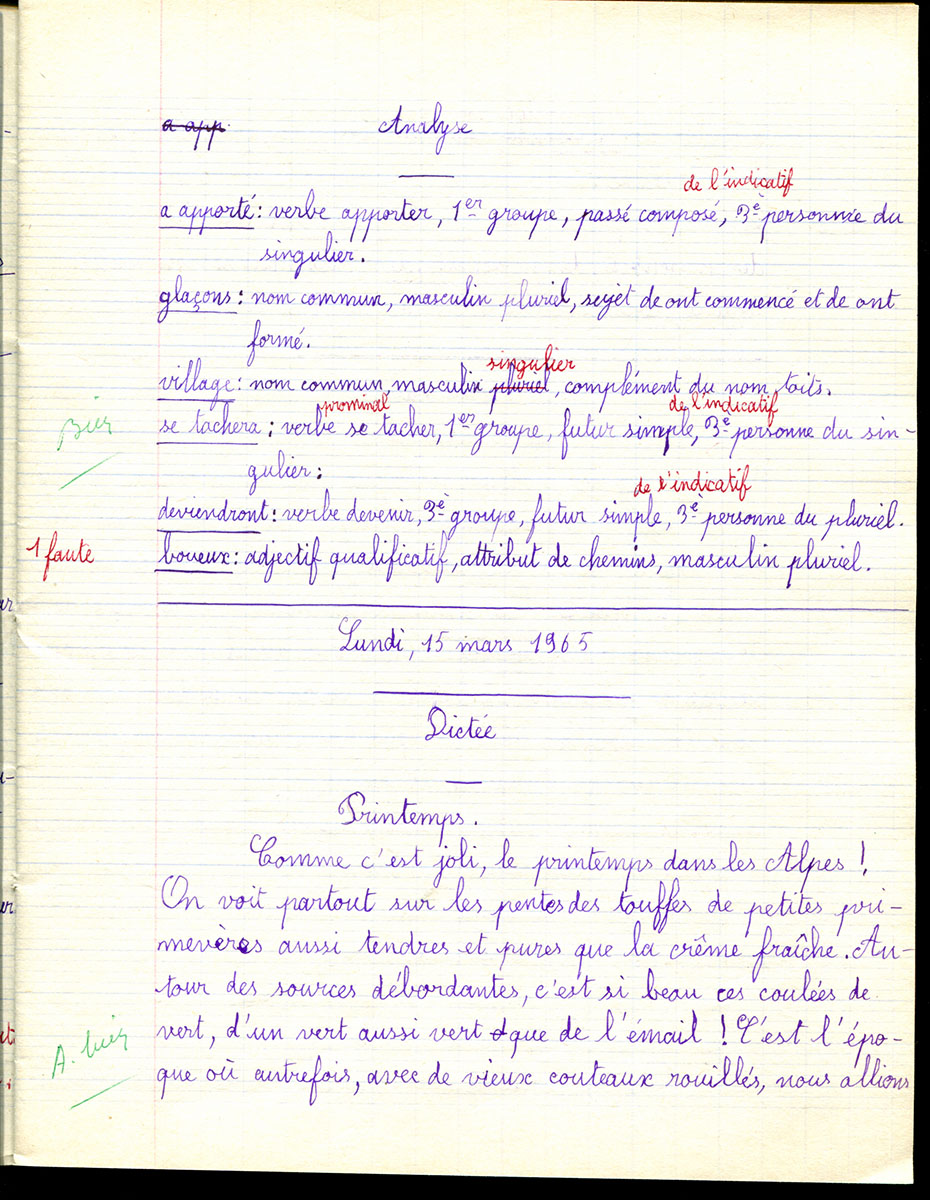 a app Analyse
de l'indicatif
a apporté : verbe apporter, 1er groupe, passé composé, 3e personne du
singulier.
glaçons : nom commun, masculin pluriel, sujet de ont commencé et de ont
formé.
singulier
village : nom commun, masculin pluriel, complément du nom toits.
Bien
pronominal de l'indicatif
se tachera : verbe se tacher, 1er groupe, futur simple, 3e personne du sin-
gulier :
de l'indicatif
deviendront : verbe devenir, 3e groupe, futur simple, 3e personne du pluriel.
1 faute
boueux : adjectif qualificatif, attribut de chemins, masculin pluriel.
Lundi, 15 mars 1965
Dictée
Printemps.
Comme c'est joli, le printemps dans les Alpes !
On voit partout sur les pentes des touffes de petites pri-
mevères aussi tendres et pures que la crême fraîche. Au-
tour des sources débordantes, c'est si beau ces coulées de
vert, d'un vert aussi vert que de l'émail ! C'est l'épo-
A. bien
que où autrefois, avec de vieux couteaux rouillés, nous allions